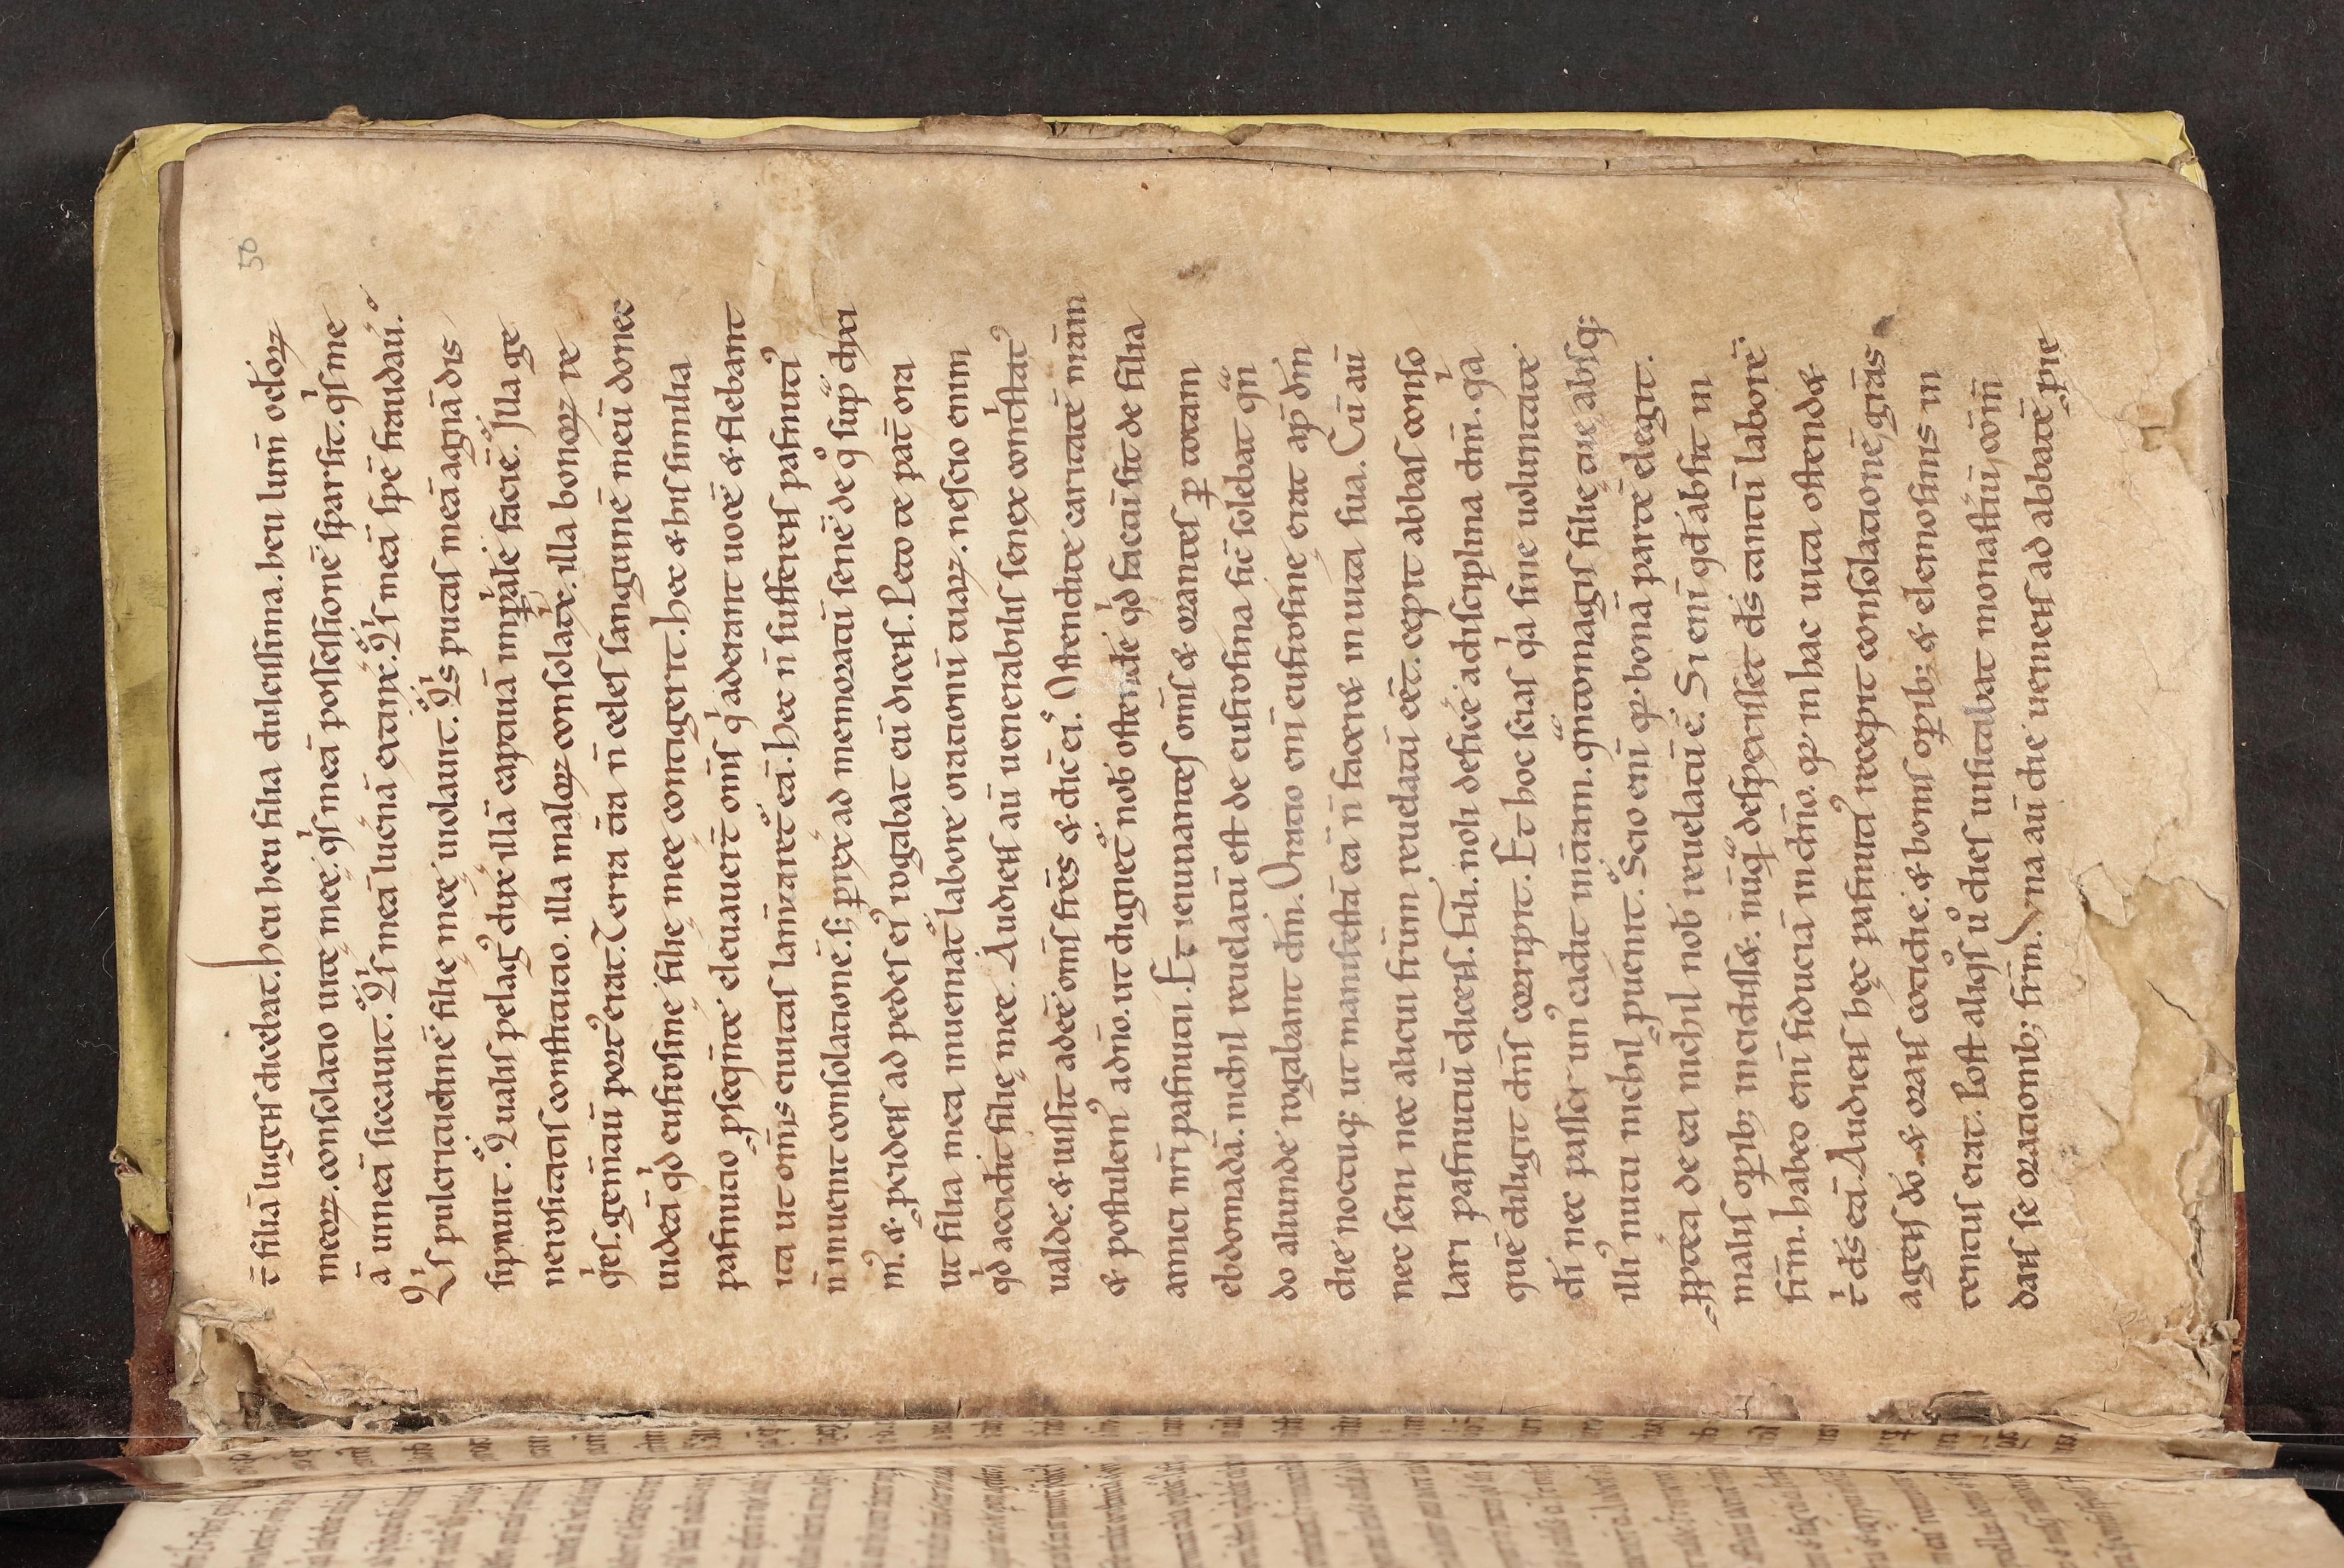 50
t̄ filiā lugens dicebat. heu heu filia dulcissima. heu lum̄ oc̄loꝝ
meoꝝ. consolatio uitę meę. qͥs meā possessionē sparsit. qͥs me
ā uineā siccauit. Qͥs meā lucernā extinx̄. Qͥs meā spē fraudau̅.
Qͥs pulcritudinē filię meę uiolauit. Qͥs putas meā agnā dis
sipauit. Qualis pelagꝰ dirę illā captiuā imꝑͥale faciē. Illa ge
nerositatis constitutio. illa maloꝝ consolatͥx. illa bonoꝝ re
qͥes. gem̄tiū portꝰ erat. Terra t̄ra n̄ celes sanguinē meū donec
uideā qͥd eufrosine filię meę contigerit. hec & his similia
pafnutio ꝓseq̄nte eleuauer̄t om̄s qͥ aderant uocē & flebant
ita ut om̄is ciuitas lam̄taret̄ eā. hec n̄ sufferens pafnutiꝰ
n̄ inuenit consolationē. sꝫ ꝑrex̄ ad memoratū senē de qͦ sup̄ dixi
mꝰ. & ꝓcidens ad pedes eiꝰ rogabat eū dicens. Peto te pat̄ ora
ut filia mea inueniat̄ labore orationū tuaꝝ. nescio enim
qͥd accidit filię meę. Audiens aū uenerabilis senex contͥstatꝰ
ualde. & iussit adeē om̄s fr̄es & dic̄ ei. Ostendite caritatē nr̄am
& postulemꝰ a dn̄o. ut dignet̄ nob̄ ostende qͥd factū sit de filia
amici nr̄i pafnutii. Et ieiunantes om̄s & orantes ꝑ totam
ebdomadā. nichil reuelatū est de eufrosina sic̄ solebat qn̄
do aliunde rogabant dn̄m. Oratio eni̅ eufrosine erat ap̄ dn̄m
die noctuqꝫ ut manifestā eā n̄ faceret in uita sua. Cū aū
nec seni nec alicui fr̄um reuelatū eēt. cepit abbas conso
lari pafnutiū dicens. Fili. noli defice a disciplina dn̄i. qͥa
quē diligit dn̄s corripit. Et hoc scias qͥa sine uoluntate
di̅ nec passer unꝰ cadit in t̄ram. qn̄to magis filię tuę absqꝫ
illiꝰ nutu nichil ꝓuenit. Scio eni̅ qꝫ bonā partē elegit.
ꝓpt̄ea de ea nichil nob̄ reuelatū ē. Si eni̅ qd̄ absit in
malis oꝑibꝫ incidisset. nūqͣ despexisset ds̄ tantū laborē
fr̄m. habeo eni̅ fiduciā in dn̄o. qꝫ in hac uita ostendet
tͥ ds̄ eā. Audiens hęc pafnutiꝰ recepit consolationē grās
agens do̅. & orans cotidie. & bonis oꝑibꝫ & elemosinis in
tentus erat. Post aliqͦs ū dies uisitabat monastiū com̄m
dans se orationibꝫ fr̄m. Vna aū die ueniens ad abbatē ꝓie